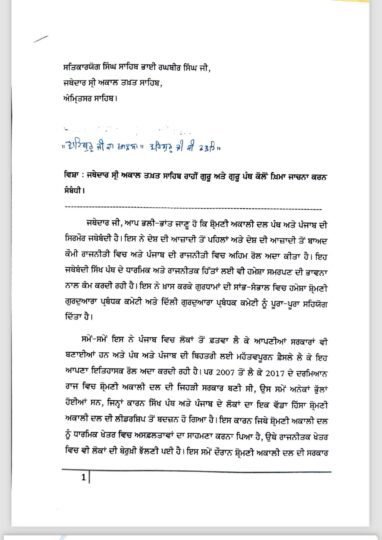 ਸਤਿਕਾਰਯੋਗ ਸਿੰਘ ਸਾਹਿਬ ਭਾਈ ਰਘਬੀਰ ਸਿੰਘ ਜੀ,
ਜਥੇਦਾਰ ਸ੍ਰੀ ਅਕਾਲ ਤਖ਼ਤ ਸਾਹਿਬ,
ਅੰਮ੍ਰਿਤਸਰ ਸਾਹਿਬ।
"ਵਾਹਿਗੁਰੂ ਜੀ ਕਾ ਖਾਲਸਾ॥ ਵਾਹਿਗੁਰੂ ਜੀ ਕੀ ਫਤਹਿ॥
ਵਿਸ਼ਾ : ਜਥੇਦਾਰ ਸ੍ਰੀ ਅਕਾਲ ਤਖ਼ਤ ਸਾਹਿਬ ਰਾਹੀਂ ਗੁਰੂ ਅਤੇ ਗੁਰੂ ਪੰਥ ਕੋਲੋਂ ਖ਼ਿਮਾ ਜਾਚਨਾ ਕਰਨ
ਸੰਬੰਧੀ।
ਜਥੇਦਾਰ ਜੀ, ਆਪ ਭਲੀ-ਭਾਂਤ ਜਾਣੂ ਹੋ ਕਿ ਸ਼੍ਰੋਮਣੀ ਅਕਾਲੀ ਦਲ ਪੰਥ ਅਤੇ ਪੰਜਾਬ ਦੀ
ਸਿਰਮੌਰ ਜਥੇਬੰਦੀ ਹੈ। ਇਸ ਨੇ ਦੇਸ਼ ਦੀ ਆਜ਼ਾਦੀ ਤੋਂ ਪਹਿਲਾਂ ਅਤੇ ਦੇਸ਼ ਦੀ ਆਜ਼ਾਦੀ ਤੋਂ ਬਾਅਦ
ਕੌਮੀ ਰਾਜਨੀਤੀ ਵਿਚ ਅਤੇ ਪੰਜਾਬ ਦੀ ਰਾਜਨੀਤੀ ਵਿਚ ਅਹਿਮ ਰੋਲ ਅਦਾ ਕੀਤਾ ਹੈ। ਇਹ
ਜਥੇਬੰਦੀ ਸਿੱਖ ਪੰਥ ਦੇ ਧਾਰਮਿਕ ਅਤੇ ਰਾਜਨੀਤਕ ਹਿੱਤਾਂ ਲਈ ਵੀ ਹਮੇਸ਼ਾ ਸਮਰਪਣ ਦੀ ਭਾਵਨਾ
ਨਾਲ ਕੰਮ ਕਰਦੀ ਰਹੀ ਹੈ। ਇਸ ਨੇ ਖ਼ਾਸ ਕਰਕੇ ਗੁਰਧਾਮਾਂ ਦੀ ਸਾਂਭ-ਸੰਭਾਲ ਵਿਚ ਹਮੇਸ਼ਾ ਸ਼੍ਰੋਮਣੀ
ਗੁਰਦੁਆਰਾ ਪ੍ਰਬੰਧਕ ਕਮੇਟੀ ਅਤੇ ਦਿੱਲੀ ਗੁਰਦੁਆਰਾ ਪ੍ਰਬੰਧਕ ਕਮੇਟੀ ਨੂੰ ਪੂਰਾ-ਪੂਰਾ ਸਹਿਯੋਗ
ਦਿੱਤਾ ਹੈ।
ਸਮੇਂ-ਸਮੇਂ ਇਸ ਨੇ ਪੰਜਾਬ ਵਿਚ ਲੋਕਾਂ ਤੋਂ ਫ਼ਤਵਾ ਲੈ ਕੇ ਆਪਣੀਆਂ ਸਰਕਾਰਾਂ ਵੀ
ਬਣਾਈਆਂ ਹਨ ਅਤੇ ਪੰਥ ਅਤੇ ਪੰਜਾਬ ਦੀ ਬਿਹਤਰੀ ਲਈ ਮਹੱਤਵਪੂਰਨ ਫ਼ੈਸਲੇ ਲੈ ਕੇ ਇਹ
ਆਪਣਾ ਇਤਿਹਾਸਕ ਰੋਲ ਅਦਾ ਕਰਦੀ ਰਹੀ ਹੈ। ਪਰ 2007 ਤੋਂ ਲੈ ਕੇ 2017 ਦੇ ਦਰਮਿਆਨ
ਰਾਜ ਵਿਚ ਸ਼੍ਰੋਮਣੀ ਅਕਾਲੀ ਦਲ ਦੀ ਜਿਹੜੀ ਸਰਕਾਰ ਬਣੀ ਸੀ, ਉਸ ਸਮੇਂ ਅਨੇਕਾਂ ਭੁੱਲਾਂ
ਹੋਈਆਂ ਸਨ, ਜਿਨ੍ਹਾਂ ਕਾਰਨ ਸਿੱਖ ਪੰਥ ਅਤੇ ਪੰਜਾਬ ਦੇ ਲੋਕਾਂ ਦਾ ਇਕ ਵੱਡਾ ਹਿੱਸਾ ਸ਼੍ਰੋਮਣੀ
ਅਕਾਲੀ ਦਲ ਦੀ ਲੀਡਰਸ਼ਿਪ ਤੋਂ ਬਦਜ਼ਨ ਹੋ ਗਿਆ ਹੈ। ਇਸ ਕਾਰਨ ਜਿਥੇ ਸ਼੍ਰੋਮਣੀ ਅਕਾਲੀ ਦਲ
ਨੂੰ ਧਾਰਮਿਕ ਖੇਤਰ ਵਿਚ ਅਸਫ਼ਲਤਾਵਾਂ ਦਾ ਸਾਹਮਣਾ ਕਰਨਾ ਪਿਆ ਹੈ, ਉਥੇ ਰਾਜਨੀਤਕ ਖੇਤਰ
ਵਿਚ ਵੀ ਲੋਕਾਂ ਦੀ ਬੇਰੁਖ਼ੀ ਝੱਲਣੀ ਪਈ ਹੈ। ਇਸ ਸਮੇਂ ਦੌਰਾਨ ਸ਼੍ਰੋਮਣੀ ਅਕਾਲੀ ਦਲ ਦੀ ਸਰਕਾਰ
1